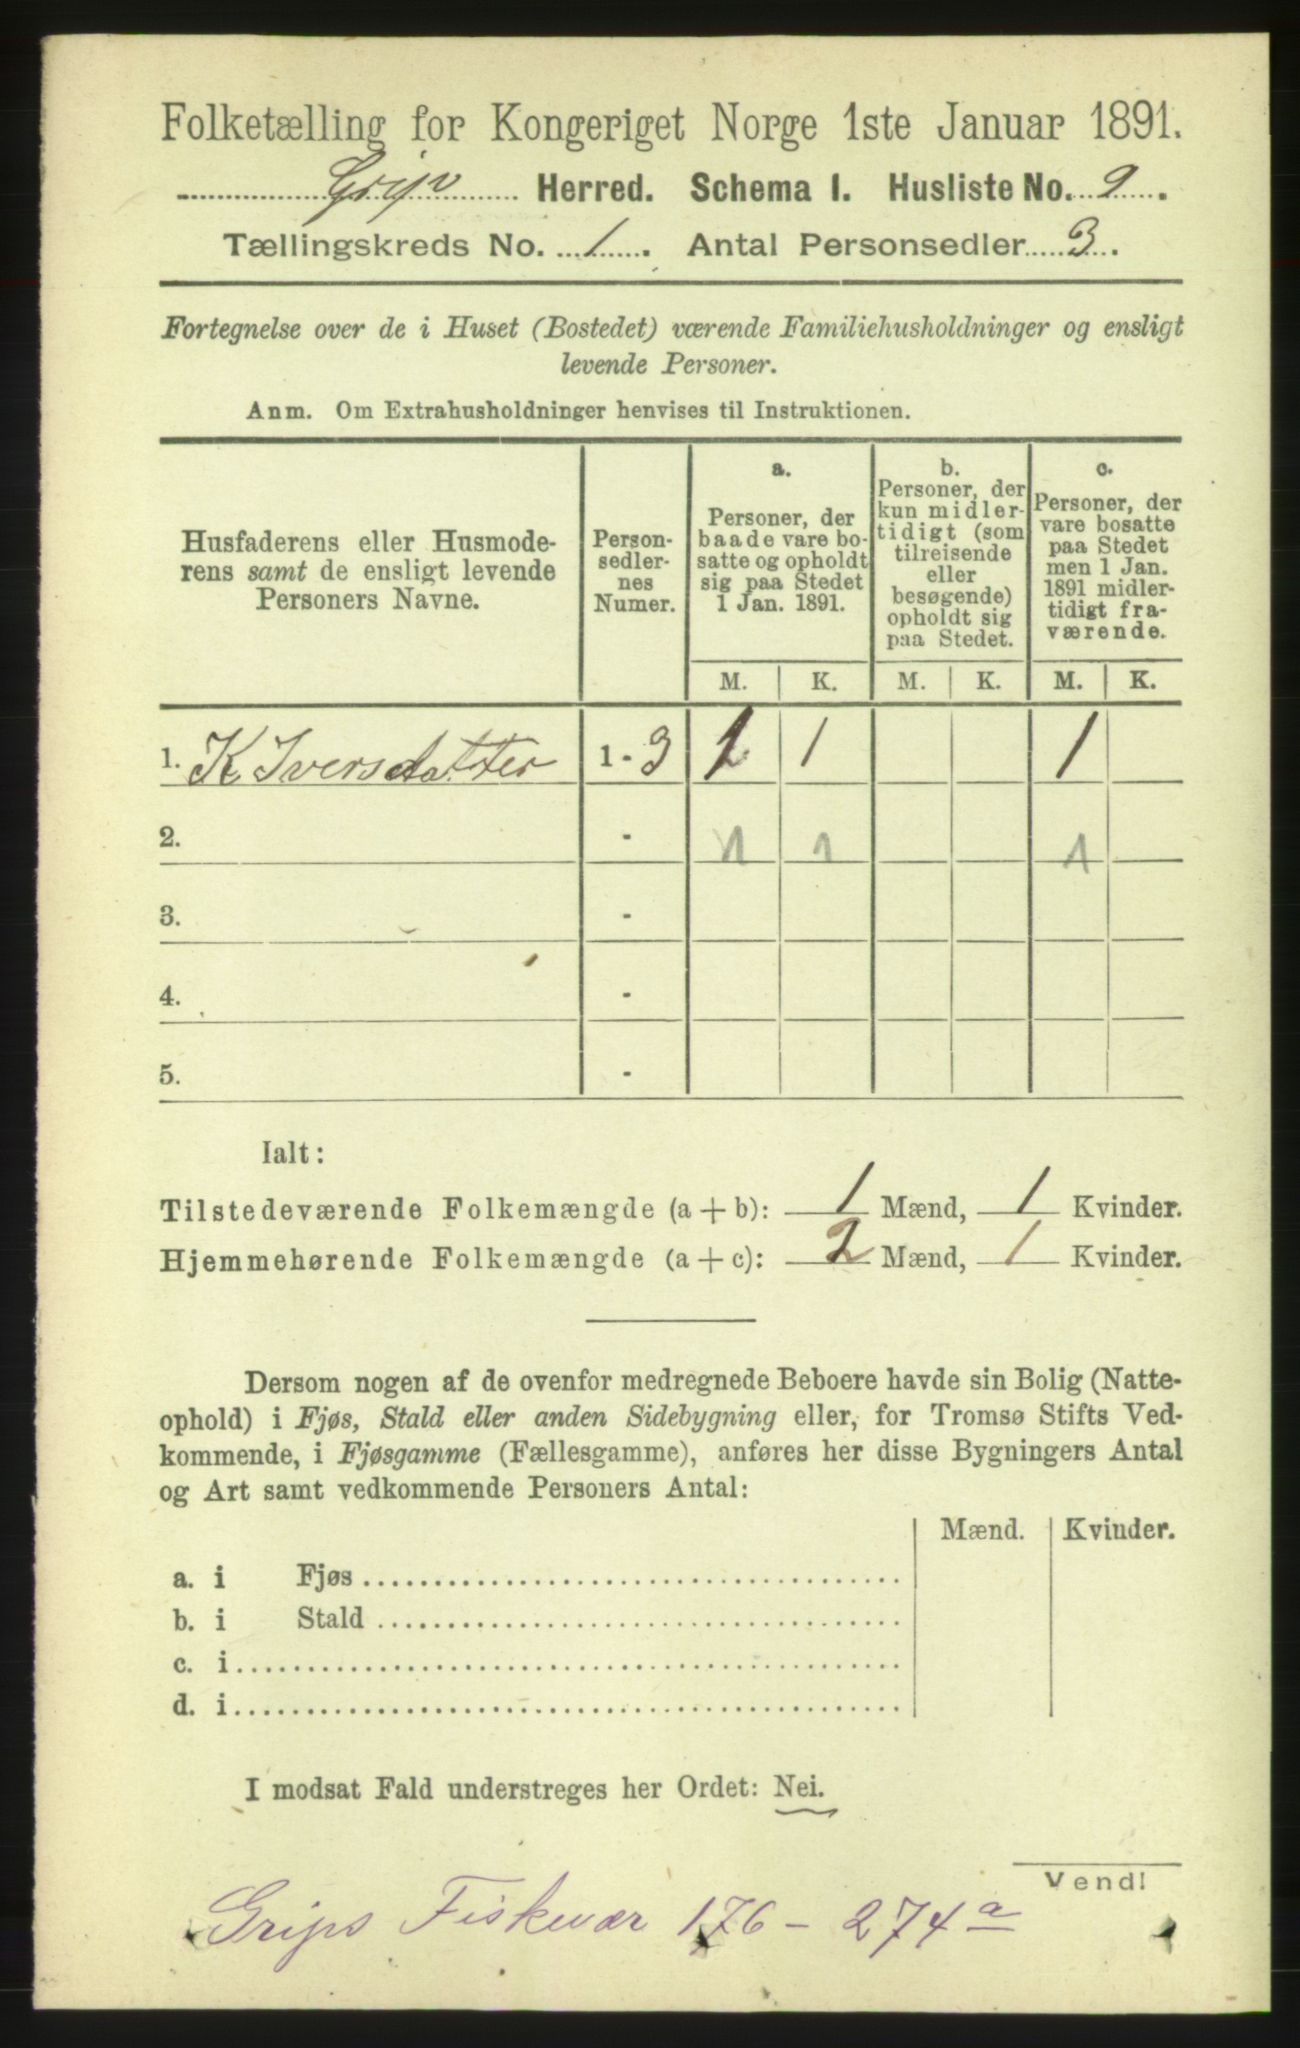 Folketælling for Kongeriget Norge 1ste Januar 1891.
Grip Herred. Schema I. Husliste No. 9.
Tællingskreds No. 1. Antal Personsedler 3.
Fortegnelse over de i Huset (Bostedet) værende Familiehusholdninger og ensligt
levende Personer.
Anm. Om Extrahusholdninger henvises til Instruktionen.
Husfaderens eller Husmode-
rens samt de ensligt levende
Personers Navne.
Person-
sedler-
nes
Numer.
a.
Personer, der
baade vare bo-
satte og opholdt
sig paa Stedet
1 Jan. 1891.
b.
Personer, der
kun midler-
tidigt (som
tilreisende
eller
besøgende)
opholdt sig
paa Stedet.
c.
Personer, der
vare bosatte
paa Stedet
men 1 Jan.
1891 midler-
tidigt fra-
værende.
M. K. M. K. M. K.
1. K Iversdatter 1-3 1 1 1
2. - 1 1 1
3. -
4. -
5. -
Ialt:
Tilstedeværende Folkemængde (a + b): 1 Mænd, 1 Kvinder.
Hjemmehørende Folkemængde (a + c): 2 Mænd, 1 Kvinder.
Dersom nogen af de ovenfor medregnede Beboere havde sin Bolig (Natte-
ophold) i Fjøs, Stald eller anden Sidebygning eller, for Tromsø Stifts Ved-
kommende, i Fjøsgamme (Fællesgamme), anføres her disse Bygningers Antal
og Art samt vedkommende Personers Antal:
Mænd. Kvinder.
a. i Fjøs
b. i Stald
c. i
d. i
I modsat Fald understreges her Ordet: Nei.
Vend!
Grips Fiskevær 176 - 274 a